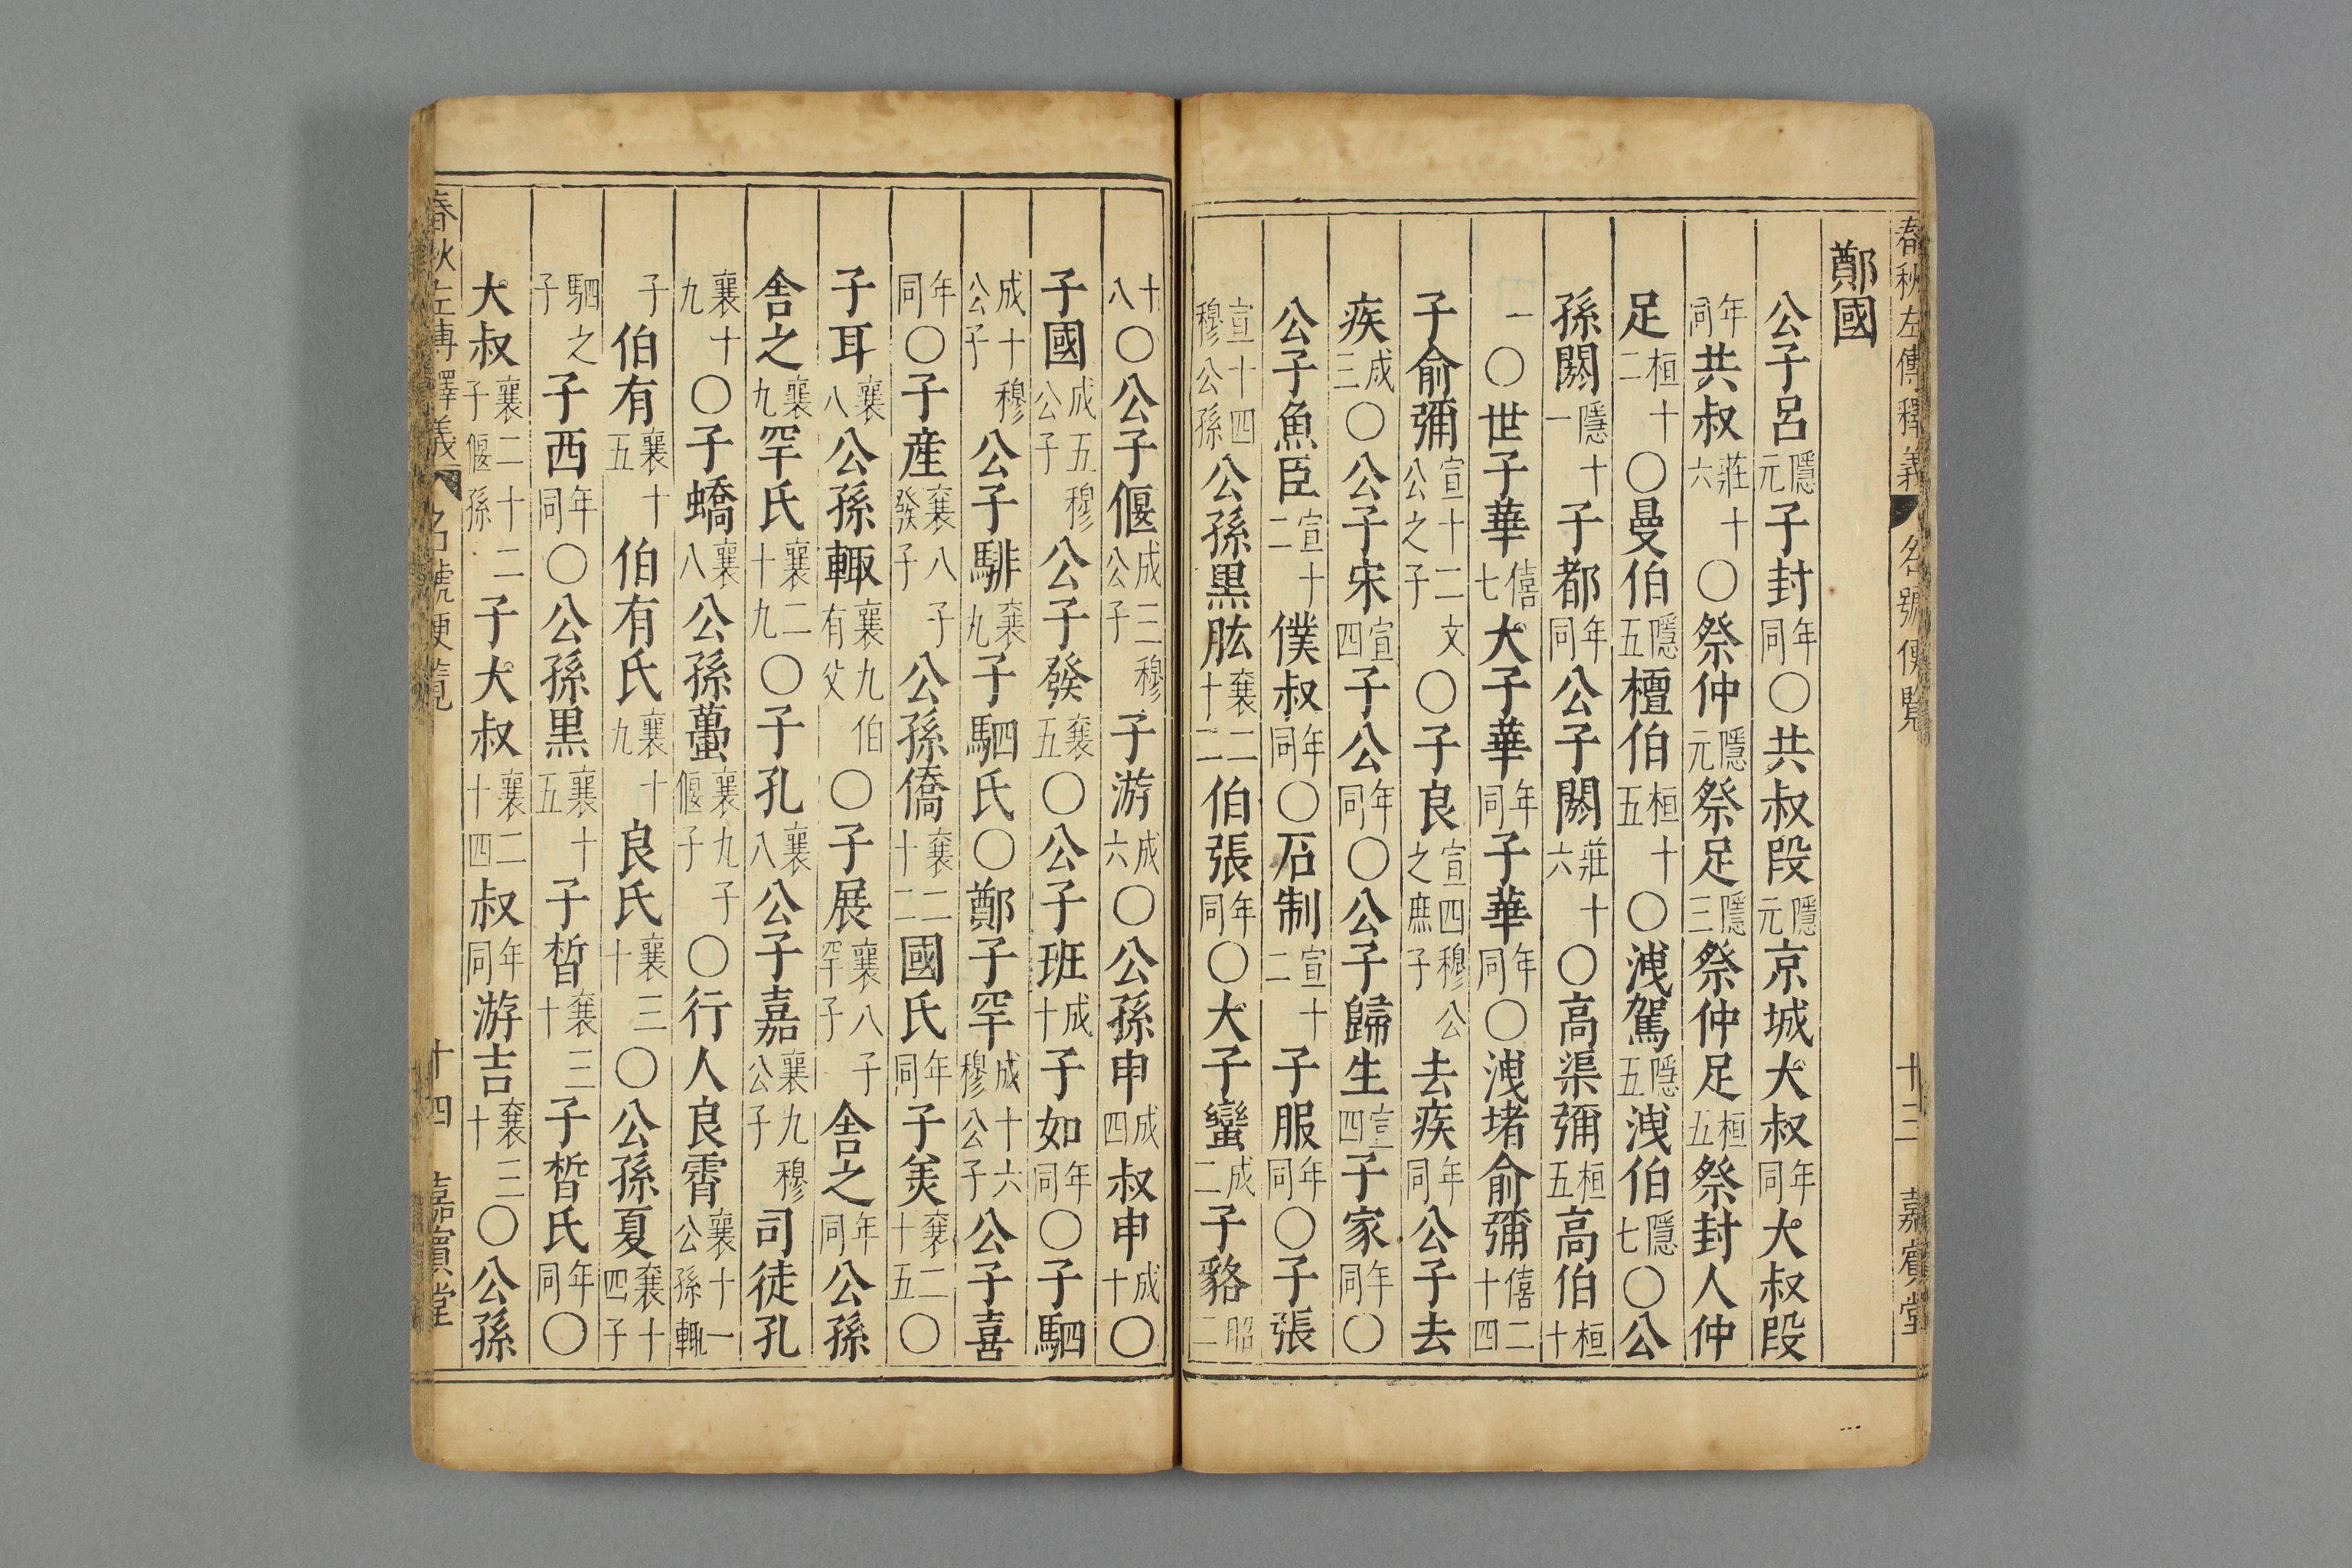 春秋左傳釋義 名號便覽 十三 嘉賓堂
鄭國
公子呂隱元子封年同〇共叔段隱元京城大叔年同大叔段
年同共叔莊十六〇祭仲隱元祭足隱三祭仲足桓五祭封人仲
足桓十二〇曼伯隱五檀伯桓十五〇洩駕隱五洩伯隱七〇公
孫閼隱十一子都年同公子閼莊十六〇高渠彌桓五高伯桓十
一〇世子華僖七大子華年同子華年同〇洩堵俞彌僖二十四
子俞彌宣十二文公之子〇子良宣四穆公之庶子去疾年同公子去
疾成三〇公子宋宣四子公年同〇公子歸生宣四子家年同〇
公子魚臣宣十二僕叔年同〇石制宣十二子服年同〇子張
宣十四穆公孫公孫黑肱襄二十二伯張年同〇大子蠻成二子貉昭二
十八〇公子偃成三穆公子子游成六〇公孫申成四叔申成十〇
子國成五穆公子公子發襄五〇公子班成十子如年同〇子駟
成十穆公子公子騑襄九子駟氏〇鄭子罕成十六穆公子公子喜
年同〇子産襄八子發子公孫僑襄二十二國氏年同子美襄二十五〇
子耳襄八公孫輒襄九伯有父〇子展襄八子罕子舍之年同公孫
舍之襄九罕氏襄二十九〇子孔襄八公子嘉襄九穆公子司徒孔
襄十九〇子蟜襄八公孫蠆襄九子偃子〇行人良霄襄十一公孫輒
子伯有襄十五伯有氏襄十九良氏襄三十〇公孫夏襄十四子
駟之子子西年同〇公孫黑襄十五子晳襄三十子晳氏年同〇
大叔襄二十二子偃孫子大叔襄二十四叔年同游吉襄三十〇公孫
春秋左傳釋義 名號便覽 十四 嘉賓堂